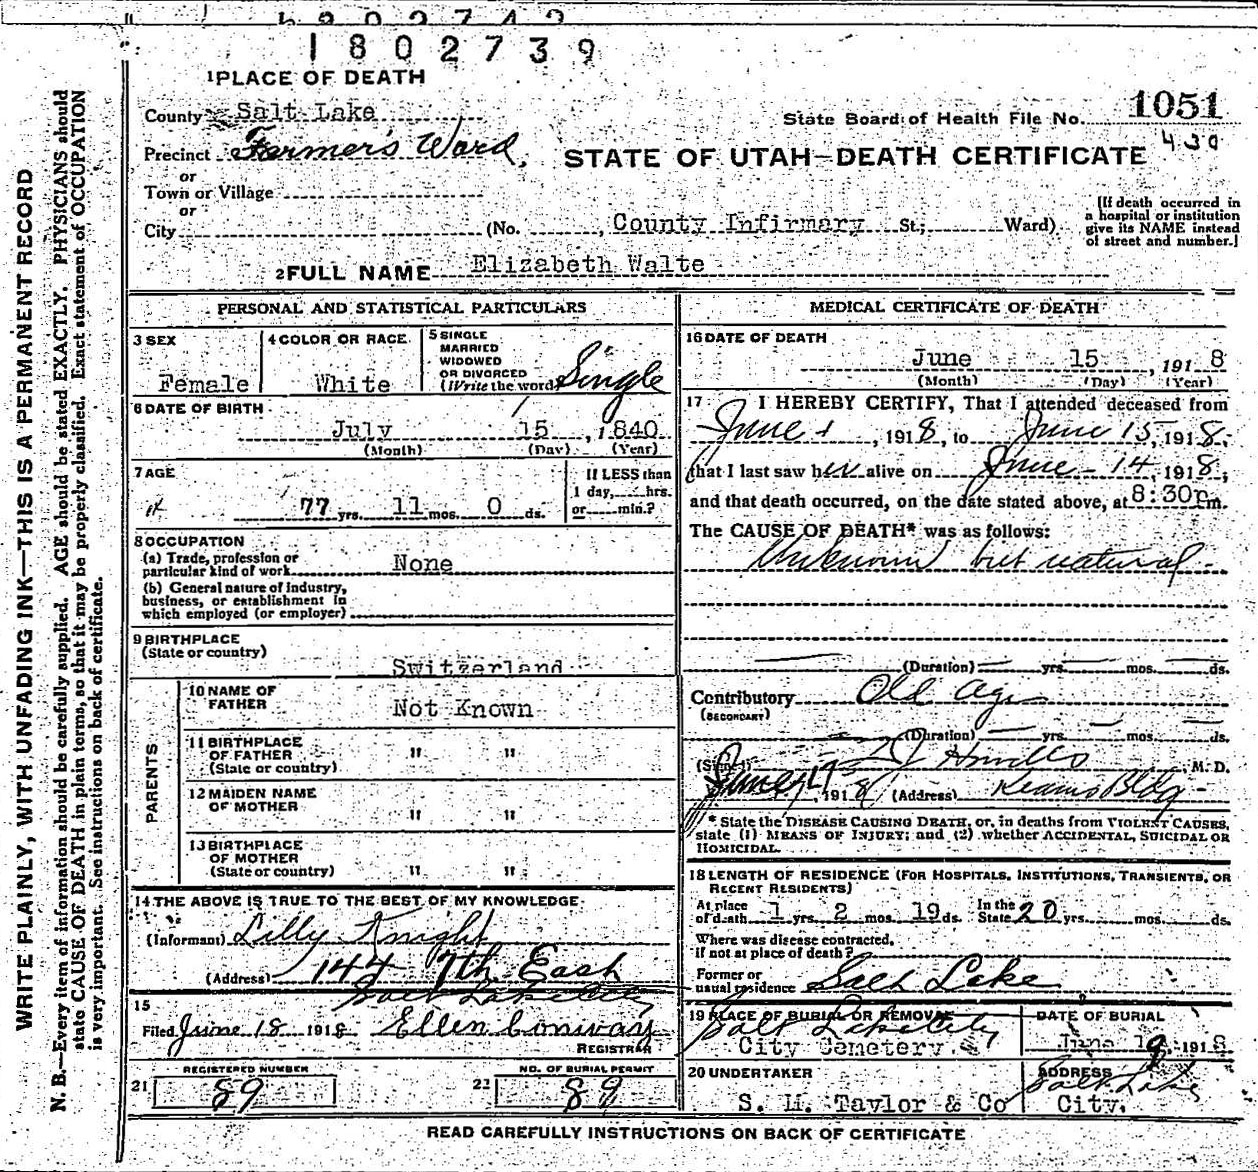 1802739
1 PLACE OF DEATH
County Salt Lake
State Board of Health File No. 1051
430
Precinct Farmer's Ward,
STATE OF UTAH—DEATH CERTIFICATE
or
Town or Village
or
City (No. , County Infirmary St.; Ward)
[If death occurred in
a hospital or institution
give its NAME instead
of street and number.]
2 FULL NAME Elizabeth Walte
PERSONAL AND STATISTICAL PARTICULARS
3 SEX
Female
4 COLOR OR RACE
White
5 SINGLE
MARRIED
WIDOWED
OR DIVORCED
(Write the word) Single
6 DATE OF BIRTH
July 15, 1840
(Month) (Day) (Year)
7 AGE
77 yrs. 11 mos. 0 ds.
If LESS than
1 day, hrs.
or min.?
8 OCCUPATION
(a) Trade, profession or
particular kind of work None
(b) General nature of industry,
business, or establishment in
which employed (or employer)
9 BIRTHPLACE
(State or country)
Switzerland
PARENTS
10 NAME OF
FATHER
Not Known
11 BIRTHPLACE
OF FATHER
(State or country)
" "
12 MAIDEN NAME
OF MOTHER
" "
13 BIRTHPLACE
OF MOTHER
(State or country)
" "
14 THE ABOVE IS TRUE TO THE BEST OF MY KNOWLEDGE
(Informant) Lilly Knight
(Address) 144 7th East
Salt Lake City
15
Filed June 18 1918 Ellen Conway
REGISTRAR
REGISTERED NUMBER
21 89
NO. OF BURIAL PERMIT
22 89
MEDICAL CERTIFICATE OF DEATH
16 DATE OF DEATH
June 15, 1918
(Month) (Day) (Year)
17 I HEREBY CERTIFY, That I attended deceased from
June 1, 1918, to June 15, 1918,
that I last saw her alive on June - 14, 1918,
and that death occurred, on the date stated above, at 8:30p m.
The CAUSE OF DEATH* was as follows:
Unknown but natural
(Duration) yrs. mos. ds.
Contributory Old Age
(SECONDARY)
(Duration) yrs. mos. ds.
(Signed) M.D.
June 17, 1918 (Address) Kearns Bldg
* State the DISEASE CAUSING DEATH, or, in deaths from VIOLENT CAUSES,
state (1) MEANS OF INJURY; and (2) whether ACCIDENTAL, SUICIDAL OR
HOMICIDAL.
18 LENGTH OF RESIDENCE (FOR HOSPITALS, INSTITUTIONS, TRANSIENTS, OR
RECENT RESIDENTS)
At place
of death 1 yrs. 2 mos. 19 ds.
In the
State 20 yrs. mos. ds.
Where was disease contracted,
if not at place of death?
Former or
usual residence Salt Lake
19 PLACE OF BURIAL OR REMOVAL
Salt Lake City
City Cemetery.
DATE OF BURIAL
June 19, 1918
20 UNDERTAKER
S. M. Taylor & Co
ADDRESS
Salt Lake
City.
READ CAREFULLY INSTRUCTIONS ON BACK OF CERTIFICATE
WRITE PLAINLY, WITH UNFADING INK—THIS IS A PERMANENT RECORD
N. B.—Every item of information should be carefully supplied. AGE should be stated EXACTLY. PHYSICIANS should
state CAUSE OF DEATH in plain terms, so that it may be properly classified. Exact statement of OCCUPATION
is very important. See instructions on back of certificate.